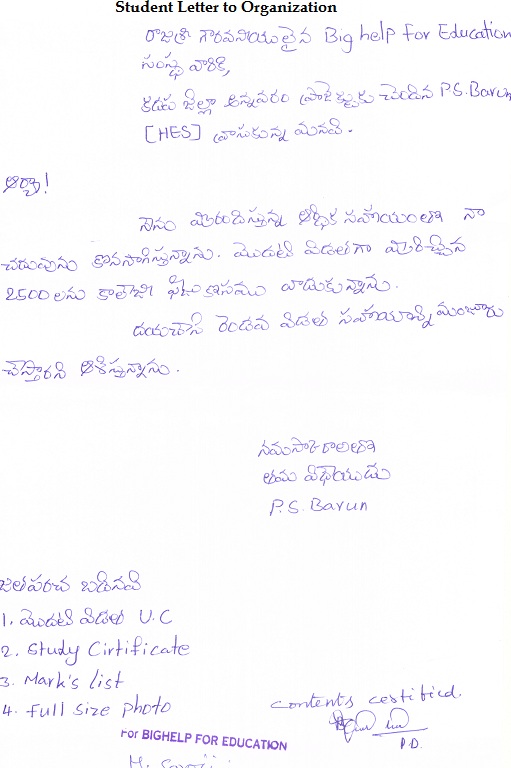 Student Letter to Organization
రాజశ్రీ గౌరవనీయులైన Big help For Education
సంస్థ వారికి,
కడప జిల్లా అన్నవరం ప్రాజెక్టుకు చెందిన P.S. Barun
[HES] వ్రాసుకున్న మనవి.
ఆర్యా!
నేను మీరందిస్తున్న ఆర్థిక సహాయంతో నా
చదువును కొనసాగిస్తున్నాను. మొదటి విడతగా మీరిచ్చిన
2500 లను కాలేజి ఫీజు కొసము వాడుకున్నాను.
దయచేసి రెండవ విడత సహాయాన్ని మంజూరు
చేస్తారని ఆశిస్తున్నాను.
నమస్కారాలతో
తమ విధేయుడు
P.S. Barun
జతపరచ బడినవి
1. మొదటి విడత U.C
2. Study Cirtificate
3. Mark's list
4. Full Size photo
contents certified.
P.D.
For BIGHELP FOR EDUCATION